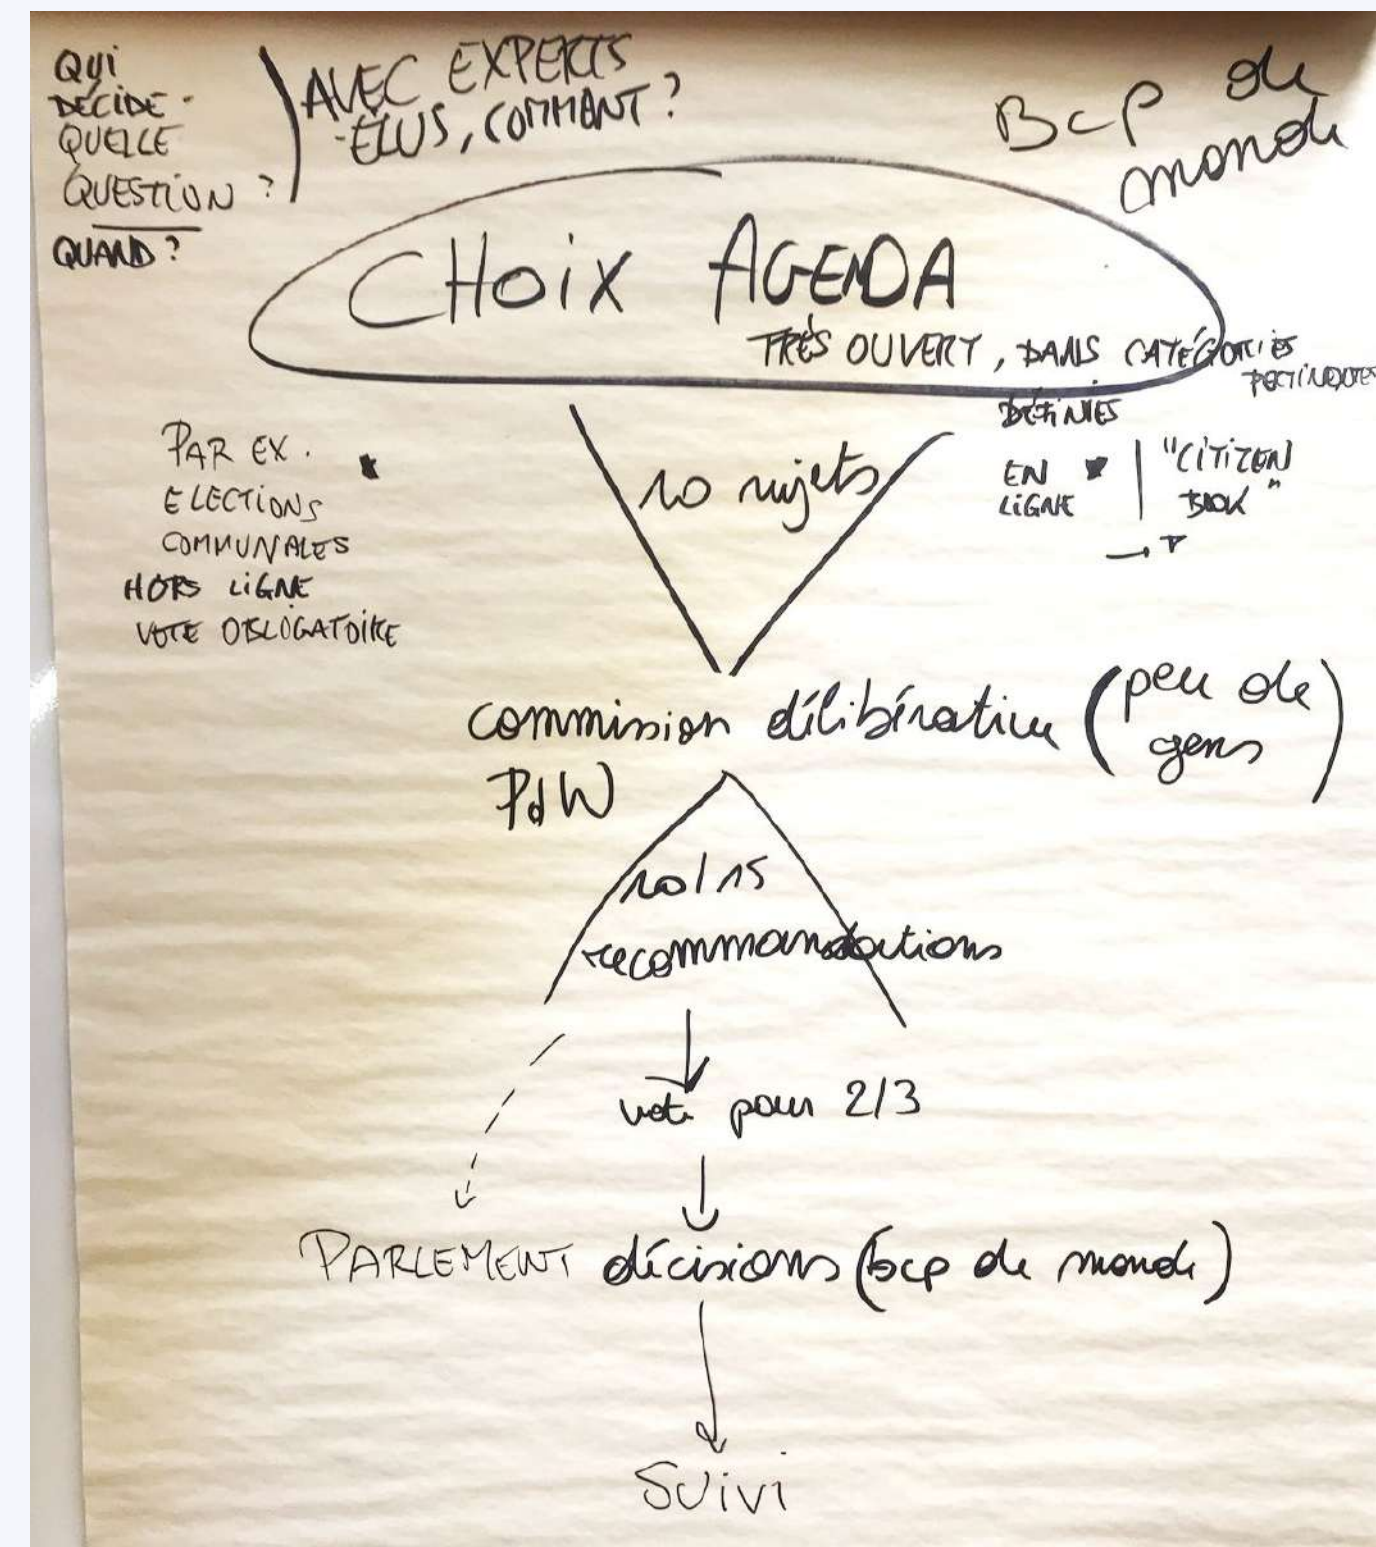 QUI
DÉCIDE -
QUELLE
QUESTION ?
QUAND ?
AVEC EXPERTS
-ÉLUS, COMMENT ?
Bcp de
monde
CHOIX AGENDA
TRÈS OUVERT, DANS CATÉGORIES
DÉFINIES
PAR EX.
ELECTIONS
COMMUNALES
HORS LIGNE
VOTE OBLIGATOIRE
10 sujets
EN
LIGNE
"CITIZEN
BOOK"
commission délibérative (peu de
gens)
PdW
10/15
recommandations
vote pour 2/3
PARLEMENT décisions (bcp de monde)
Suivi